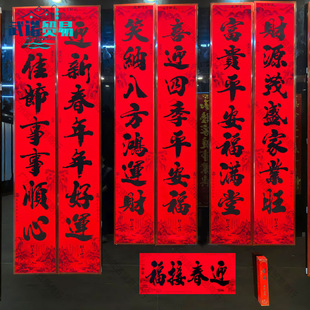 贸易
財源茂盛家業旺
富貴平安福滿堂
喜迎四季平安福
笑納八方鴻運財
迎新春年年好運
佳節事事順心
迎春接福